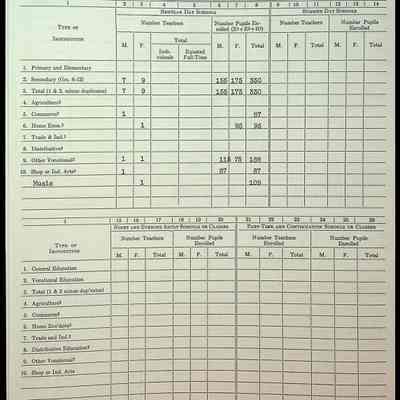 1 2 3 4 5 6 7 8 9 10 11 12 13 14
REGULAR DAY SCHOOLS SUMMER DAY SCHOOLS
TYPE OF INSTRUCTION Number Teachers Number Pupils En- Number Teachers Number Pupils Enrolled
Total
M. F. Indi- Equated M. F. Total M. F. Total M. F. Total
viduals Full-Time
1. Primary and Elementary
2. Secondary (Grs. 8-12) 7 9 155 175 330
3. Total (1 & 2, minus duplicates) 7 9 155 175 330
4. Agricultural
5. Commerce 1 67
6. Home Econ. 1 95 95
7. Trade & Ind.
8. Distributive
9. Other Vocational 1 1 75
10. Shop or Ind. Arts 1 67 67
Music 1 109
1 15 16 17 18 19 20 21 22 23 24 25 26
NIGHT AND EVENING ADULT SCHOOLS OR CLASSES PART-TIME AND CONTINUATION SCHOOLS OR CLASSES
TYPE OF INSTRUCTION Number Teachers Number Pupils Enrolled Number Teachers Enrolled Number Pupils Enrolled
M. F. Total M. F. Total M. F. Total M. F. Total
1. General Education
2. Vocational Education
3. Total (1 & 2 minus duplicates)
4. Agricultural
5. Commerce
6. Home Economics
7. Trade and Ind.
8. Distributive Education
9. Other Vocational
10. Shop or Ind. Arts